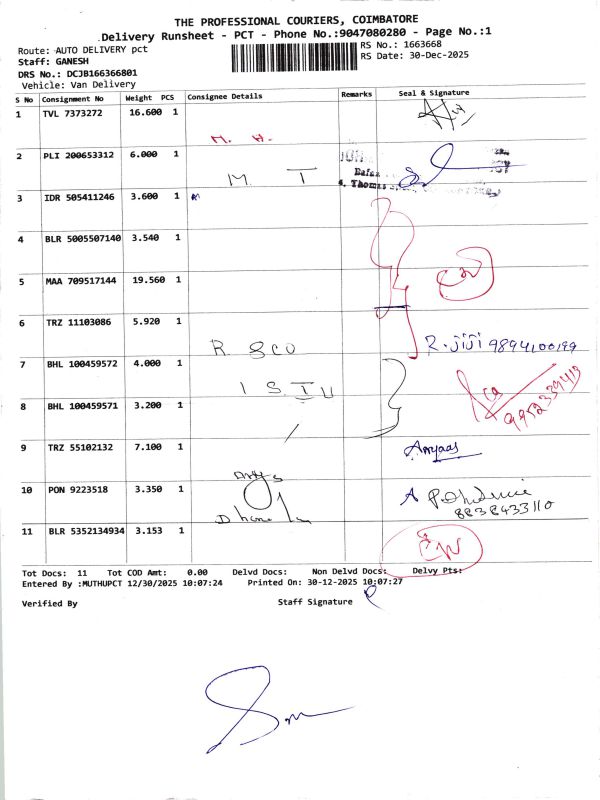 THE PROFESSIONAL COURIERS, COIMBATORE
Delivery Runsheet - PCT - Phone No.:9047080280 - Page No.:1
Route: AUTO DELIVERY pct
RS No.: 1663668
Staff: GANESH
RS Date: 30-Dec-2025
DRS No.: DCJB166366801
Vehicle: Van Delivery
S No Consignment No Weight PCS Consignee Details Remarks Seal & Signature
1 TVL 7373272 16.600 1
M. H.
2 PLI 200653312 6.000 1
M T
4. Thomas
3 IDR 505411246 3.600 1
4 BLR 5005507140 3.540 1
5 MAA 709517144 19.560 1
6 TRZ 11103086 5.920 1
R SCO R. jiji 9894100199
7 BHL 100459572 4.000 1
1 S T U
9952339419
8 BHL 100459571 3.200 1
9 TRZ 55102132 7.100 1
10 PON 9223518 3.350 1
8838433110
11 BLR 5352134934 3.153 1
Tot Docs: 11 Tot COD Amt: 0.00 Delvd Docs: Non Delvd Docs: Delvy Pts:
Entered By :MUTHUPCT 12/30/2025 10:07:24 Printed On: 30-12-2025 10:07:27
Verified By Staff Signature